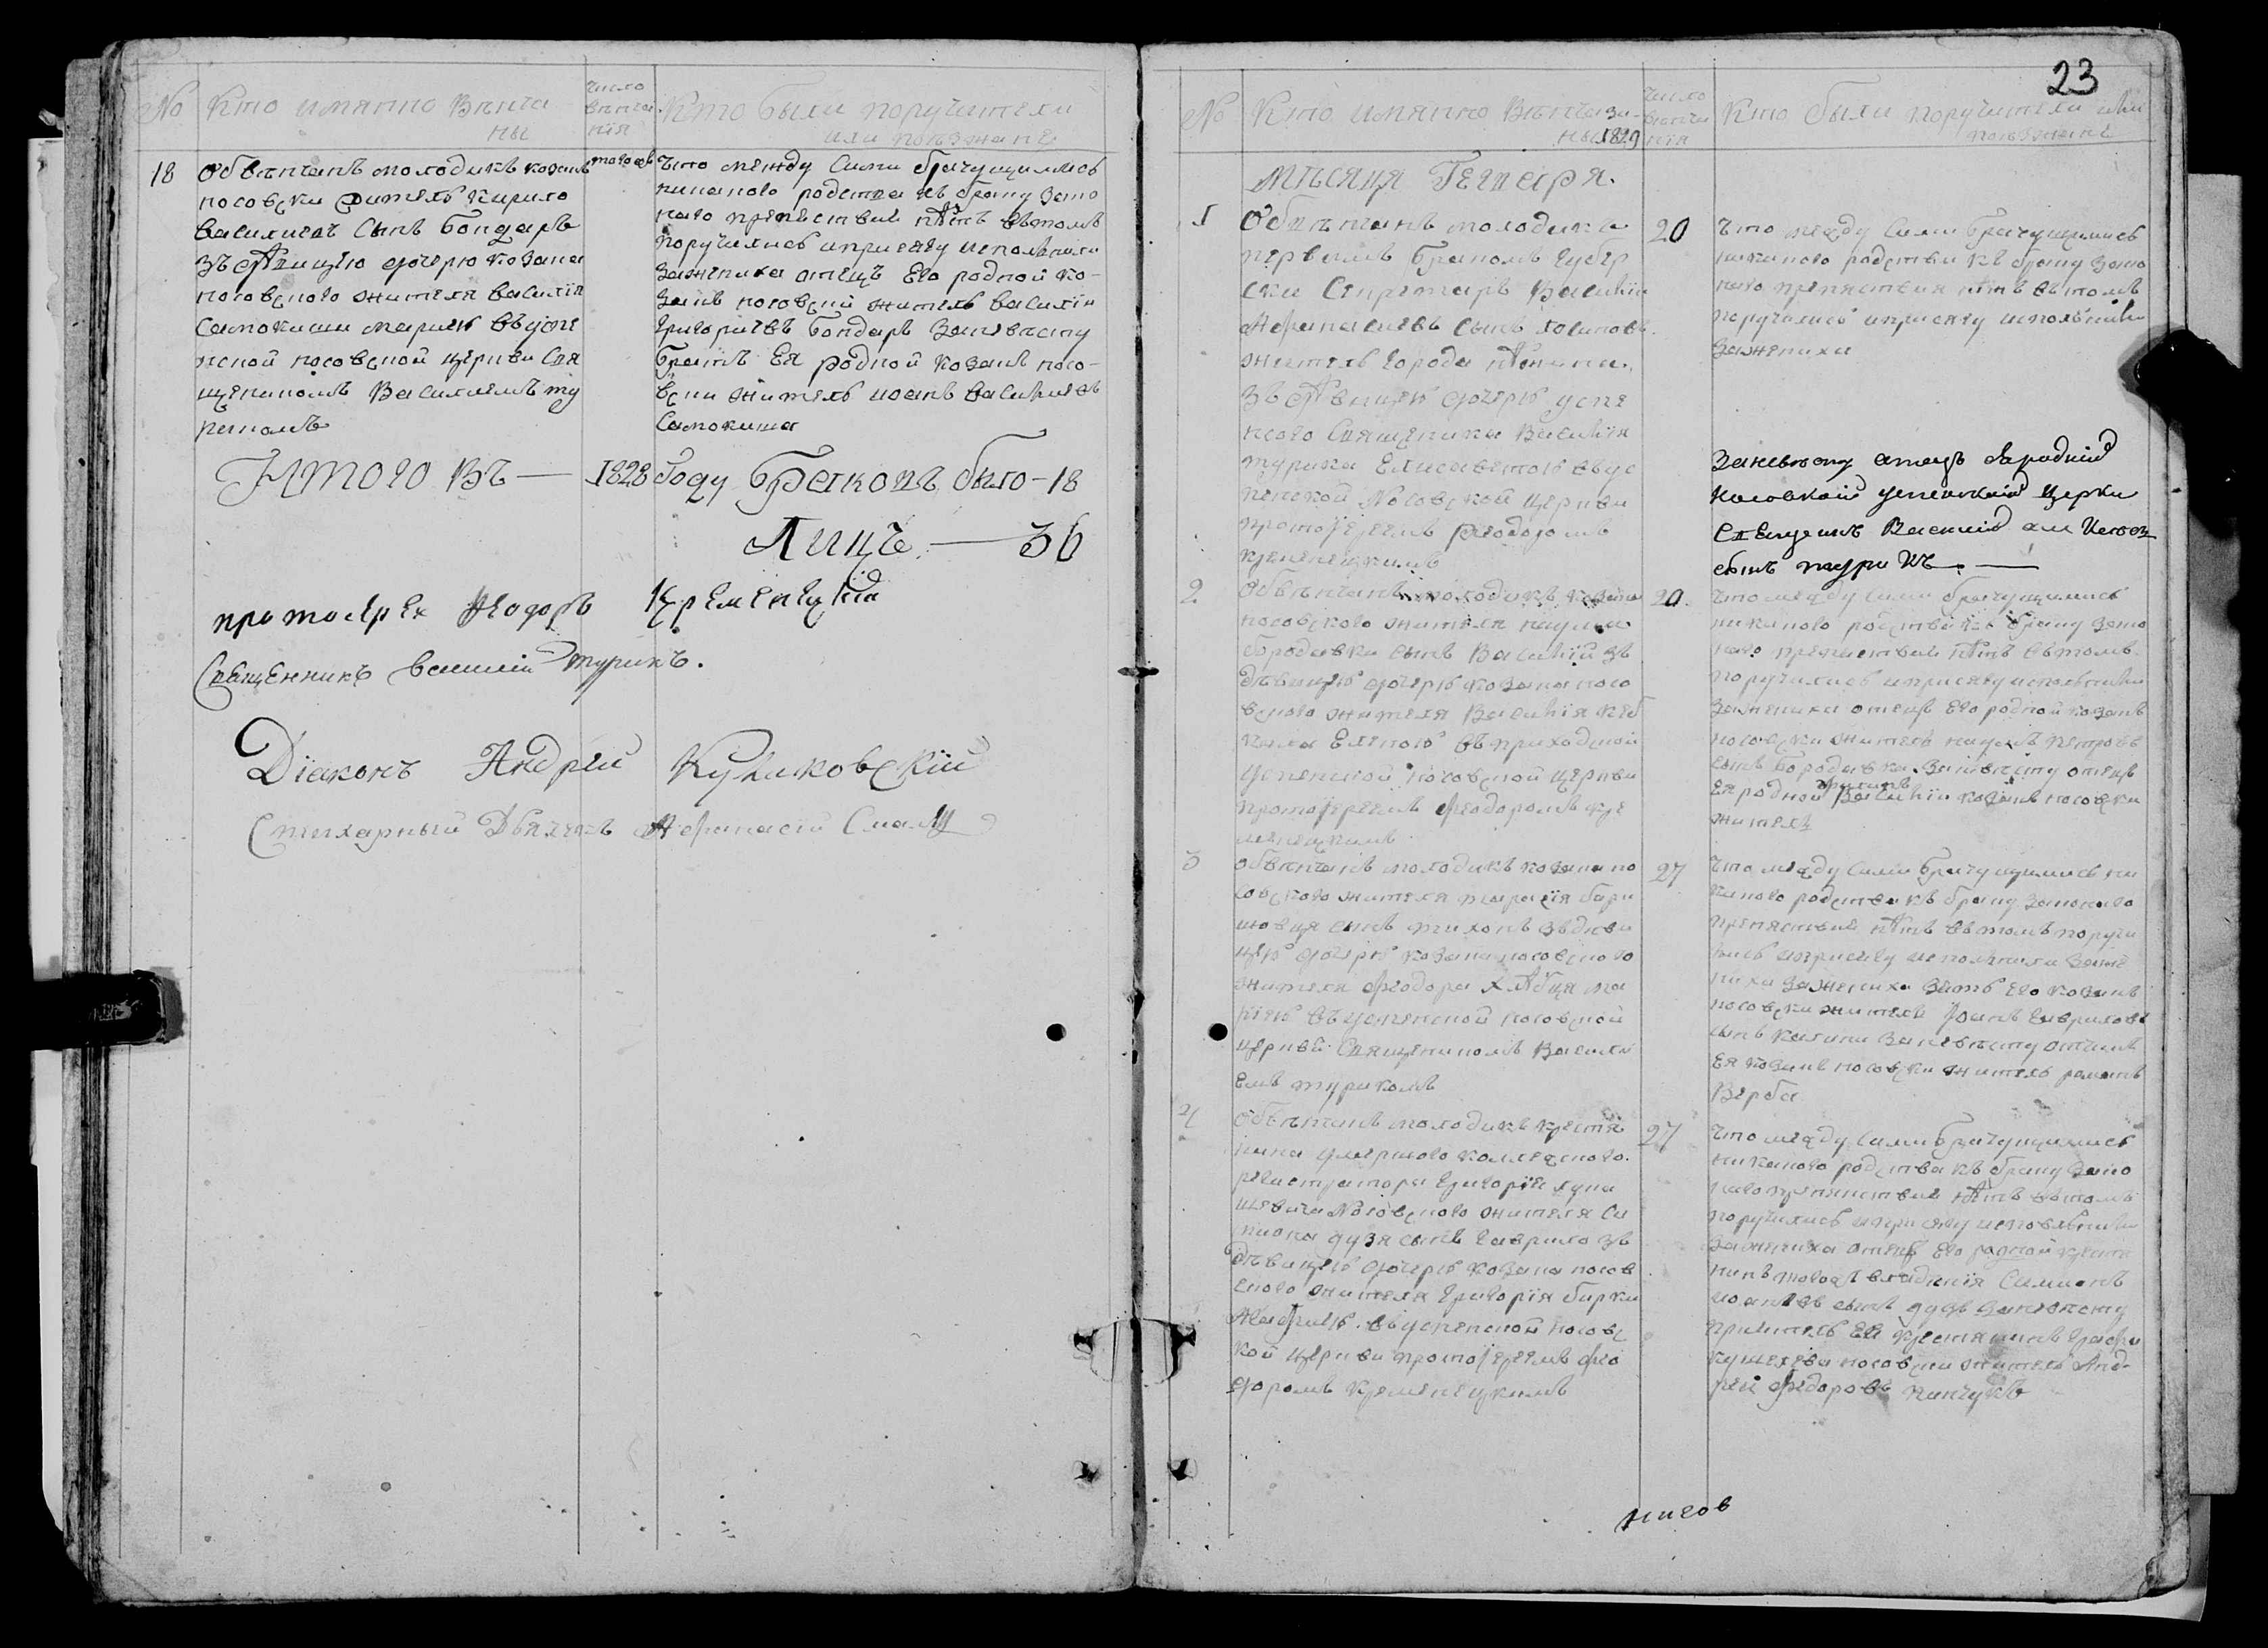 No
Кто имянно Венча
ны
число
венча
нія
Кто были поручители
или поезжане
18
Обвенчанъ молодикъ козакъ
носовски житель Кирило
Василиевъ сынъ Бондаръ
зъ девицею дочерю козака
носовского жителя Василія
Самокиши Мариею въ успе
нской носовской церкви Свя
щенникомъ Василиемъ ту
рикомъ
тогожъ
Что между сими брачущимись
никакого родства къ браку зако
наго препятствия нѣтъ въ томъ
поручились и присягу исполнили
зажениха отецъ Его родной ко-
закъ носовский житель Василий
Григориевъ Бондаръ заневѣсту
братъ Ея родной козакъ носо-
вски житель иоанъ василиевъ
Самокиша
Итого въ — 1828 Году Браковъ было - 18
Лицъ — 36
протоиерей Феодоръ Кременецкій
Священникъ Василій Турикъ.
Діаконъ Андрей Куликовскій
Стихарный Дьячекъ Афанасій
No
Кто имянно Венча
ны 1829
число
венча
нія
Кто были поручители или
поезжане
23
Мѣсяця Генваря.
1
Обвенчанъ молодикъ
первымъ бракомъ губер
ски Секретаръ Василій
Афанасиевъ сынъ
житель города нѣжина.
зъ девицею дочерю успе
нского Священника Василія
турика Елисаветою въ ус
пенской Носовской церкви
протоіереемъ Феодоромъ
кременецкимъ
20
Что между сими брачущимись
никакого родства къ браку зако
наго препятствия нѣтъ въ томъ
поручились и присягу исполнили
зажениха
Заневѣсту отецъ Ея родній
Носовской успенской церкви
Священикъ Василій
сынъ турикъ. —
2
Обвѣнчанъ молодикъ козака
носовского жителя наума
бородавки сынъ Василій зъ
девицею дочерю козака носо
вского жителя Василія
Еленою въ приходской
успенской носовской церкви
протоіереемъ Феодоромъ кре
менецкимъ
20.
Что между сими брачущимись
никакого родства къ браку зако
наго препятствия нѣтъ въ томъ
поручились и присягу исполнили
зажениха отецъ Его родной козакъ
носовски житель наумъ петровъ
сынъ бородавка. Заневѣсту отецъ
Ея родной Василій козакъ носовски
житель
3
обвѣнчанъ молодикъ козака но
совского жителя тарасія
сынъ тихонъ зъ деви
цею дочерю козака носовского
жителя Феодора
въ успенской носовской
церкви Священикомъ Васили
емъ туриком
27
Что между сими брачущимись ни
какого родства къ браку законаго
препятствия нѣтъ въ томъ поручи
лись и присягу исполнили
зажениха зять Его козакъ
носовски житель Іоанъ Гавриловъ
сынъ калина заневѣсту отчимъ
Ея козакъ носовски житель романъ
Верба
4
Обвѣнчанъ молодикъ крестя
нина умершого коллежского.
регистратора Григорія
Носовского жителя Си
миона дузя сынъ Гаврило зъ
девицею дочерю козака носов
ского жителя Григорія бирки
Агафиею. въ успенской носовс
кой церкви протоіереемъ Фео
доромъ кременецкимъ
27
Что между сими брачущимись
никакого родства къ браку зако
наго препятствия нѣтъ въ томъ
поручились и присягу исполнили
зажениха отецъ Его родной крестя
нинъ того владѣния Симионъ
иоановъ сынъ дудзь заневѣсту
приятель Ея крестянинъ графа
кушелева носовски житель Анд-
рей Федоровъ